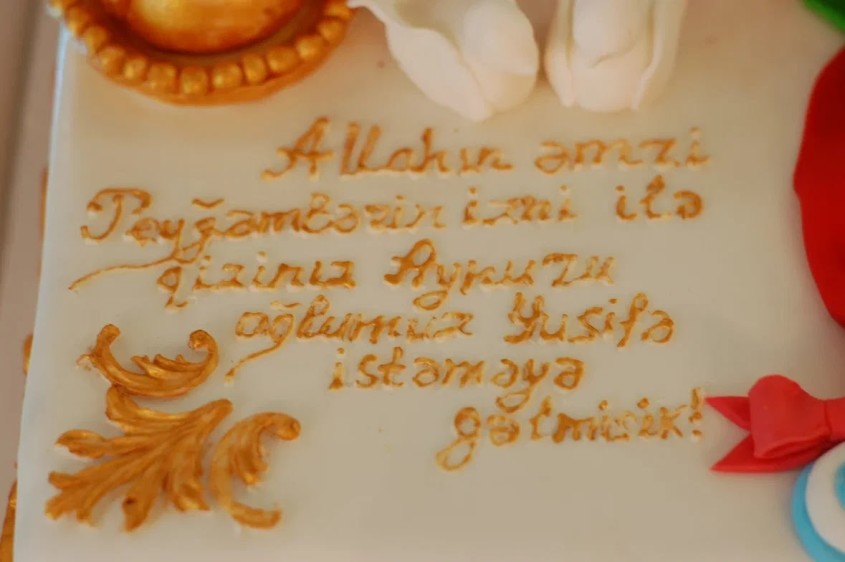 Allahın əmri
Peyğəmbərin izni ilə
qızınız Aynuru
oğlumuz Yusifə
istəməyə
gəlmişik!